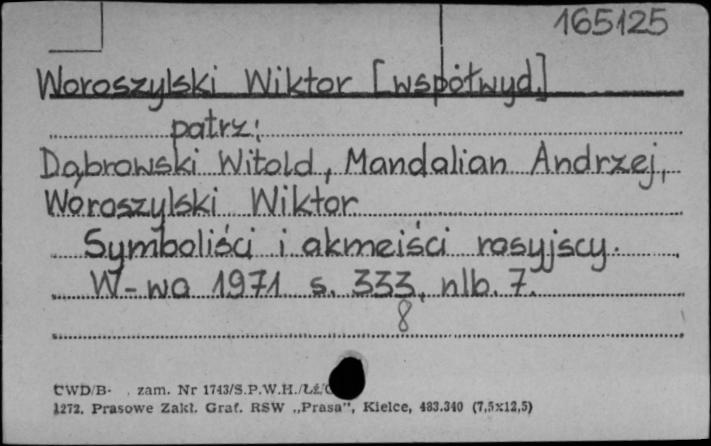 165125
Woroszylski Wiktor [współwyd.]
patrz:
Dąbrowski Witold, Mandalian Andrzej,
Woroszylski Wiktor
Symboliści i akmeiści rosyjscy.
W-wa 1971 s. 333, nlb. 7.
8
CWD/B- zam. Nr 1743/S.P.W.H./Łź/
1272. Prasowe Zakł. Graf. RSW „Prasa”, Kielce, 483.340 (7,5x12,5)